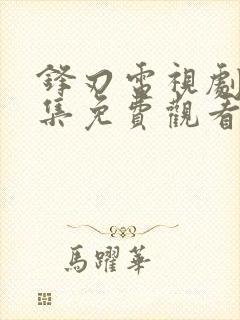 鋒刃雷視劇
集免費觀看
馬躍華